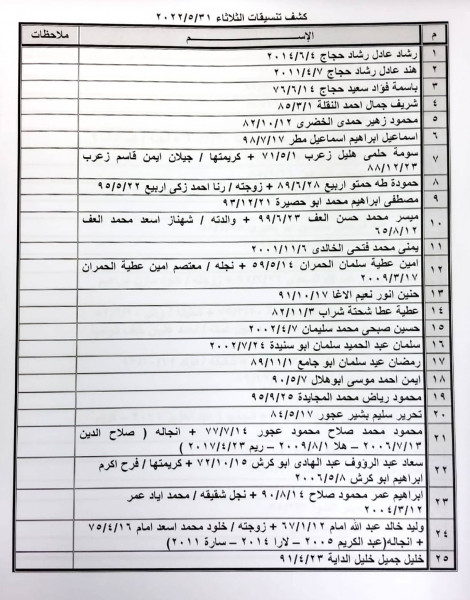 كشف تنسيقات الثلاثاء ٢٠٢٢/٥/٣١
م الإســـــــم ملاحظات
١ رشاد عادل رشاد حجاج ٢٠١٤/٦/٤
٢ هند عادل رشاد حجاج ٢٠١١/٤/٧
٣ باسمة فؤاد سعيد حجاج ٧٦/٦/١٤
٤ شريف جمال احمد النقلة ٨٥/٣/١
٥ محمود زهير حمدى الخضرى ٨٢/١٠/١٢
٦ اسماعيل ابراهيم اسماعيل مطر ٩٨/٧/١٧
٧ سومة حلمى هليل زعرب ٧١/٥/١ + كريمتها / جيلان ايمن قاسم زعرب
٨٨/١٢/٢٣
٨ حمودة طه حمتو اربيع ٨٩/٦/٢٨ + زوجته / رنا احمد زكى اربيع ٩٥/٥/٢٢
٩ مصطفى ابراهيم محمد ابو حصيرة ٩٣/١٢/٢١
١٠ ميسر محمد حسن العف ٩٩/٦/٢٣ + والدته / شهناز اسعد محمد العف
٦٥/٨/١٢
١١ يمنى محمد فتحى الخالدى ٢٠٠١/١١/٦
١٢ امين عطية سلمان الحمران ٥٩/٥/١٤ + نجله / معتصم امين عطية الحمران
٢٠٠٩/٣/١٧
١٣ حنين انور نعيم الاغا ٩١/١٠/١٧
١٤ عطية عطا شحتة شراب ٨٢/١١/٣
١٥ حسين صبحى محمد سليمان ٢٠٠٢/٤/٧
١٦ سلمان عبد الحميد سلمان ابو سنيدة ٢٠٠٢/٧/٢٤
١٧ رمضان عيد سلمان ابو جامع ٨٩/١١/١
١٨ ايمن احمد موسى ابوهلال ٩٠/٥/٧
١٩ محمود رياض محمد المجايدة ٩٥/٩/٢٥
٢٠ تحرير سليم بشير عجور ٨٤/٥/١٧
٢١ محمود محمد صلاح محمود عجور ٧٧/٧/١٤ + انجاله ( صلاح الدين
٢٠٠٦/٧/١٣ – هلا ٢٠٠٩/٨/١ – ريم ٢٠١٧/٤/٢٣ )
٢٢ سعاد عبد الرؤوف عبد الهادى ابو كرش ٧٢/١٠/١٥ + كريمتها / فرح اكرم
ابراهيم ابو كرش ٢٠٠٦/٥/٨
٢٣ ابراهيم عمر محمود صلاح ٩٠/٨/١٤ + نجل شقيقه / محمد اياد عمر
٢٠٠٤/٣/١٢
٢٤ وليد خالد عبد الله امام ٦٧/١/١٢ + زوجته / خلود محمد اسعد امام ٧٥/٤/١٦
+ انجاله(عبد الكريم ٢٠٠٥ – لارا ٢٠١٤ – سارة ٢٠١١ )
٢٥ خليل جميل خليل الداية ٩١/٤/٢٣